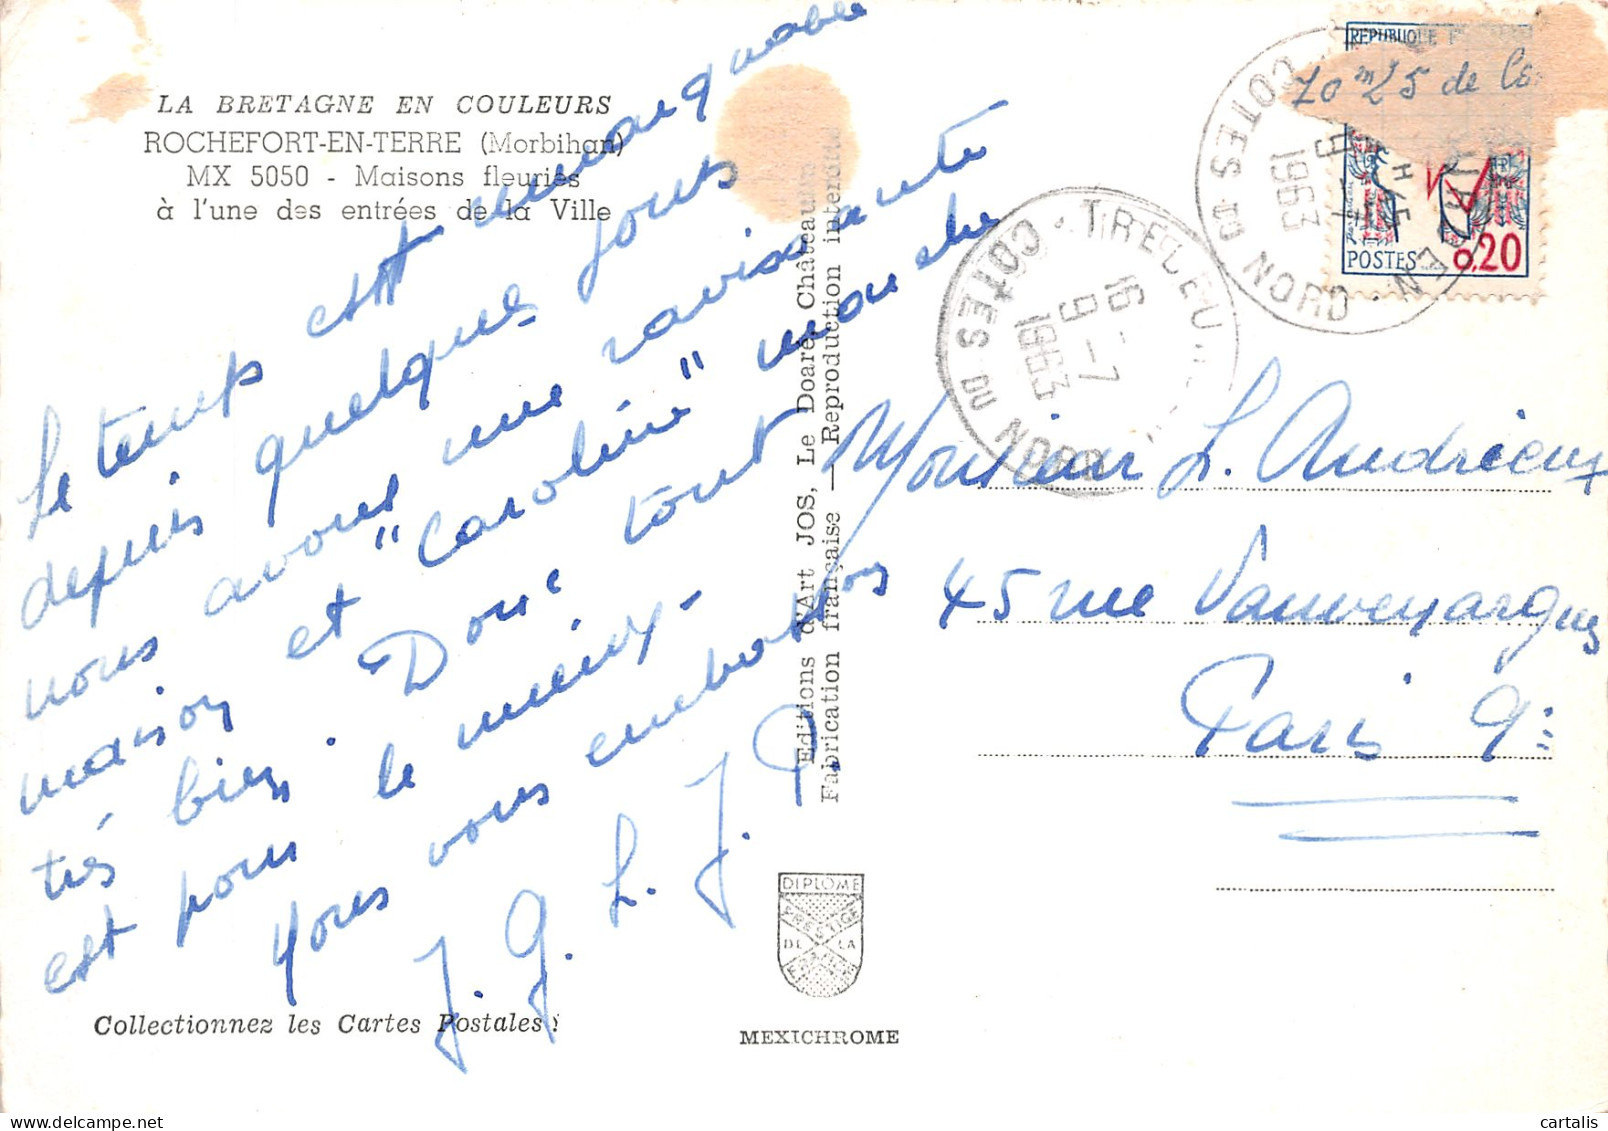 LA BRETAGNE EN COULEURS
ROCHEFORT-EN-TERRE (Morbihan)
MX 5050 - Maisons fleuries
à l'une des entrées de la Ville
Le temps est remarquable
depuis quelques jours
nous avons une ravissante
maison et "Caroline" marche
très bien. "Don" tout
est pour le mieux -
nous vous embrassons
J. G. L. J. P.
Collectionnez les Cartes Postales !
Editions d'Art JOS, Le Doaré, Châteaulin
Fabrication française — Reproduction interdite
DIPLOME
PRESTIGE
DE LA
MEXICHROME
REPUBLIQUE
70 m 25 de
POSTES
0,20
COTES DU NORD
1963
TRELEV
COTES DU NORD
16 -
9 - 7
1963
Monsieur L. Andrieux
45 rue Vauvenargues
Paris
cartalis